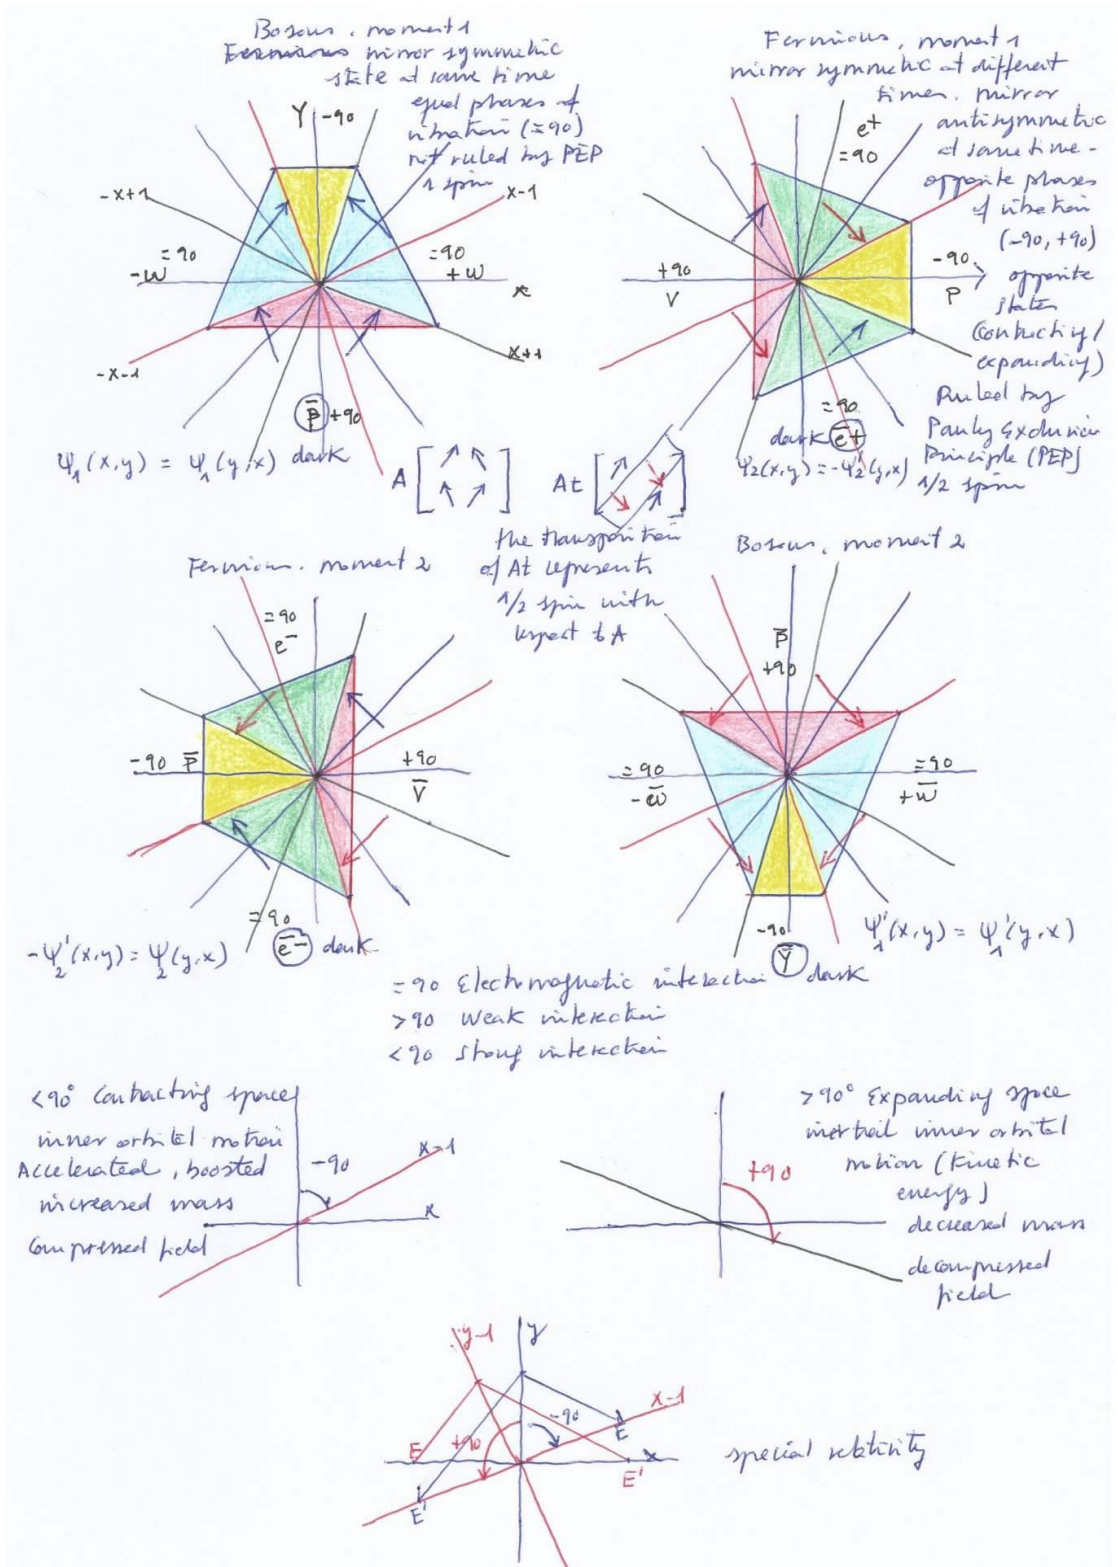 Bosons, moment 1
Fermions mirror symmetric
state at same time
equal phases of
vibration (=90)
not ruled by PEP
1 spin
Y -90
-x+1
x-1
=90
-w
=90
+w
x
-x-1
x+1
p̅ +90
dark
Ψ₁(x,y) = Ψ₁(y,x)
Fermions, moment 1
mirror symmetric at different
times. mirror
antisymmetric
at same time -
opposite phases
of vibration
(-90, +90)
opposite
states
(contracting/
expanding)
Ruled by
Pauly Exclusion
Principle (PEP)
1/2 spin
e+
=90
+90
V
-90
P
=90
dark e̅+
Ψ₂(x,y)=-Ψ₂'(y,x)
A [ ]
At [ ]
the transposition
of At represents
1/2 spin with
respect to A
Fermions. moment 2
=90
e-
-90 P̅
+90
V̅
=90
e̅- dark
-Ψ₂'(x,y) = Ψ₂(y,x)
Bosons, moment 2
p̅
+90
=90
-w̅
=90
+w̅
-90
Y̅ dark
Ψ₁'(x,y) = Ψ₁'(y,x)
=90 Electromagnetic interaction
>90 Weak interaction
<90 strong interaction
<90° Contracting space
inner orbital motion
Accelerated, boosted
increased mass
Compressed field
-90
x-1
x
>90° Expanding space
inertial inner orbital
motion (kinetic
energy)
decreased mass
decompressed
field
+90
y-1
y
x-1
+90
-90
E
E
x
E'
E'
special relativity